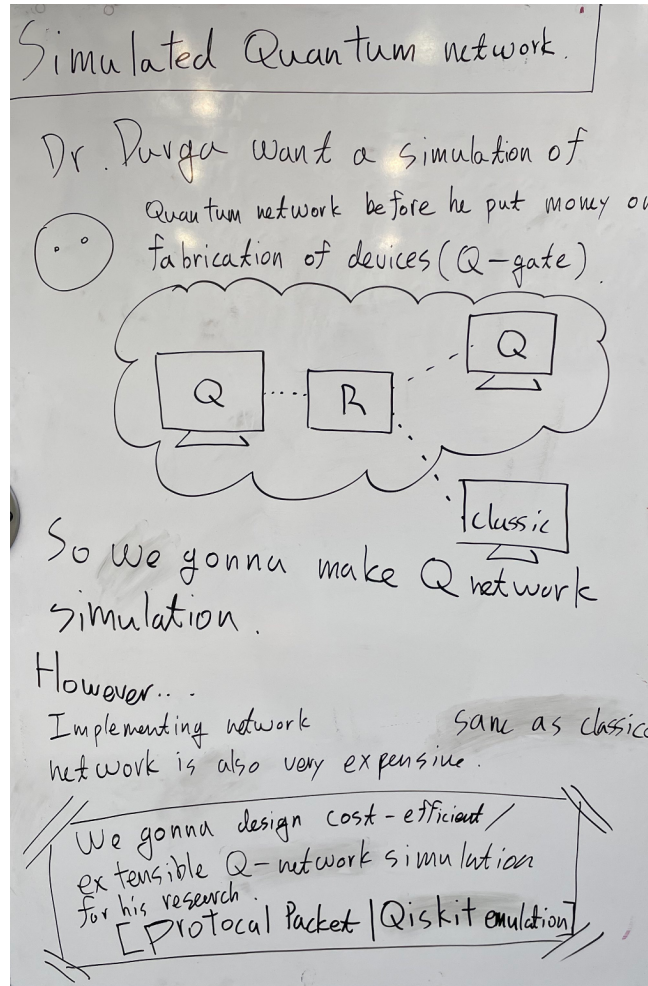 Simulated Quantum network.
Dr. Durga want a simulation of
Quantum network before he put money on
fabrication of devices (Q-gate).
Q
Q
R
classic
So we gonna make Q network
simulation.
However...
Implementing network same as classic
network is also very expensive.
We gonna design cost-efficient/
extensible Q-network simulation
for his research.
[Protocal Packet | Qiskit emulation]